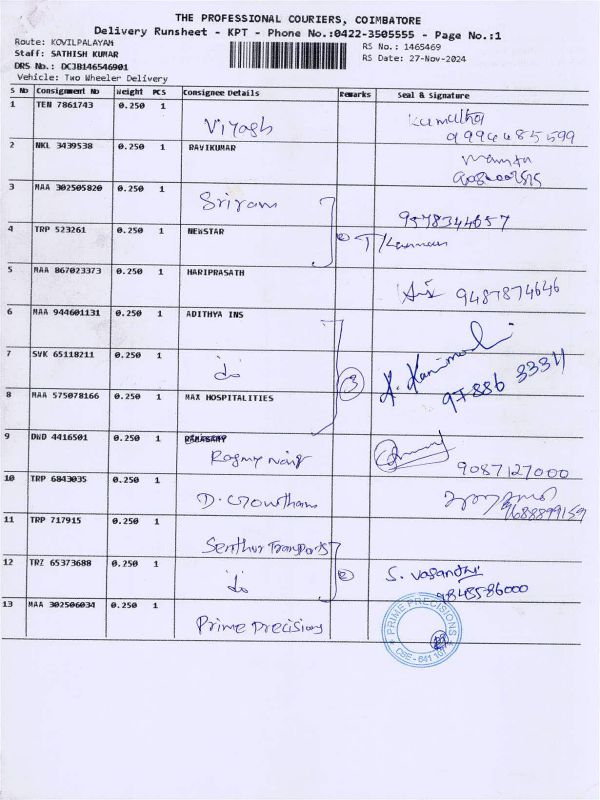 THE PROFESSIONAL COURIERS, COIMBATORE
Delivery Runsheet - KPT - Phone No.:0422-3505555 - Page No.:1
Route: KOVILPALAYAM
RS No.: 1465469
Staff: SATHISH KUMAR
RS Date: 27-Nov-2024
DRS No.: DCJB146546901
Vehicle: Two Wheeler Delivery
S No Consignment No Weight PCS Consignee Details Remarks Seal & Signature
1 TEN 7861743 0.250 1
9994485599
2 NKL 3439538 0.250 1 RAVIKUMAR
3 MAA 302505820 0.250 1 Sriram
9578344657
4 TRP 523261 0.250 1 NEWSTAR
5 MAA 867023373 0.250 1 HARIPRASATH
9487874646
6 MAA 944601131 0.250 1 ADITHYA INS
7 SVK 65118211 0.250 1 do
3
97886 33311
8 MAA 575078166 0.250 1 MAX HOSPITALITIES
9 DND 4416501 0.250 1
9087127000
10 TRP 6843035 0.250 1 D. Gowtham
9688899159
11 TRP 717915 0.250 1 Senthur Transports
12 TRZ 65373688 0.250 1 do
2
S. Vasanthi
9848586000
13 MAA 302506034 0.250 1 Prime Precisions
PRIME PRECISIONS
CBE - 641 107